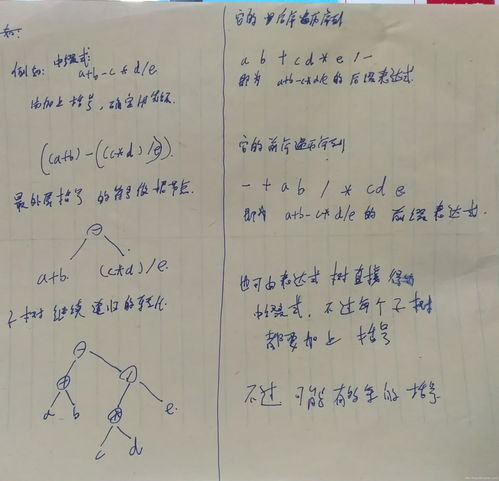 例如: 中缀式:
a+b-c*d/e
①加上括号,确定优先级.
((a+b)-((c*d)/e)).
最外层括号的符号做根节点.
-
a+b. (c*d)/e.
子树继续递归的转化
-
+ /
a b * e.
c d
它的后序遍历序列
a b + c d * e / -
即为 a+b-c*d/e 的 后缀表达式.
它的前序遍历序列
- + a b / * c d e
即为 a+b-c*d/e 的 前缀表达式.
也可由表达式树直接得出
中缀式, 不过每个子树
都要加上 括号
不过 可能有多余的括号